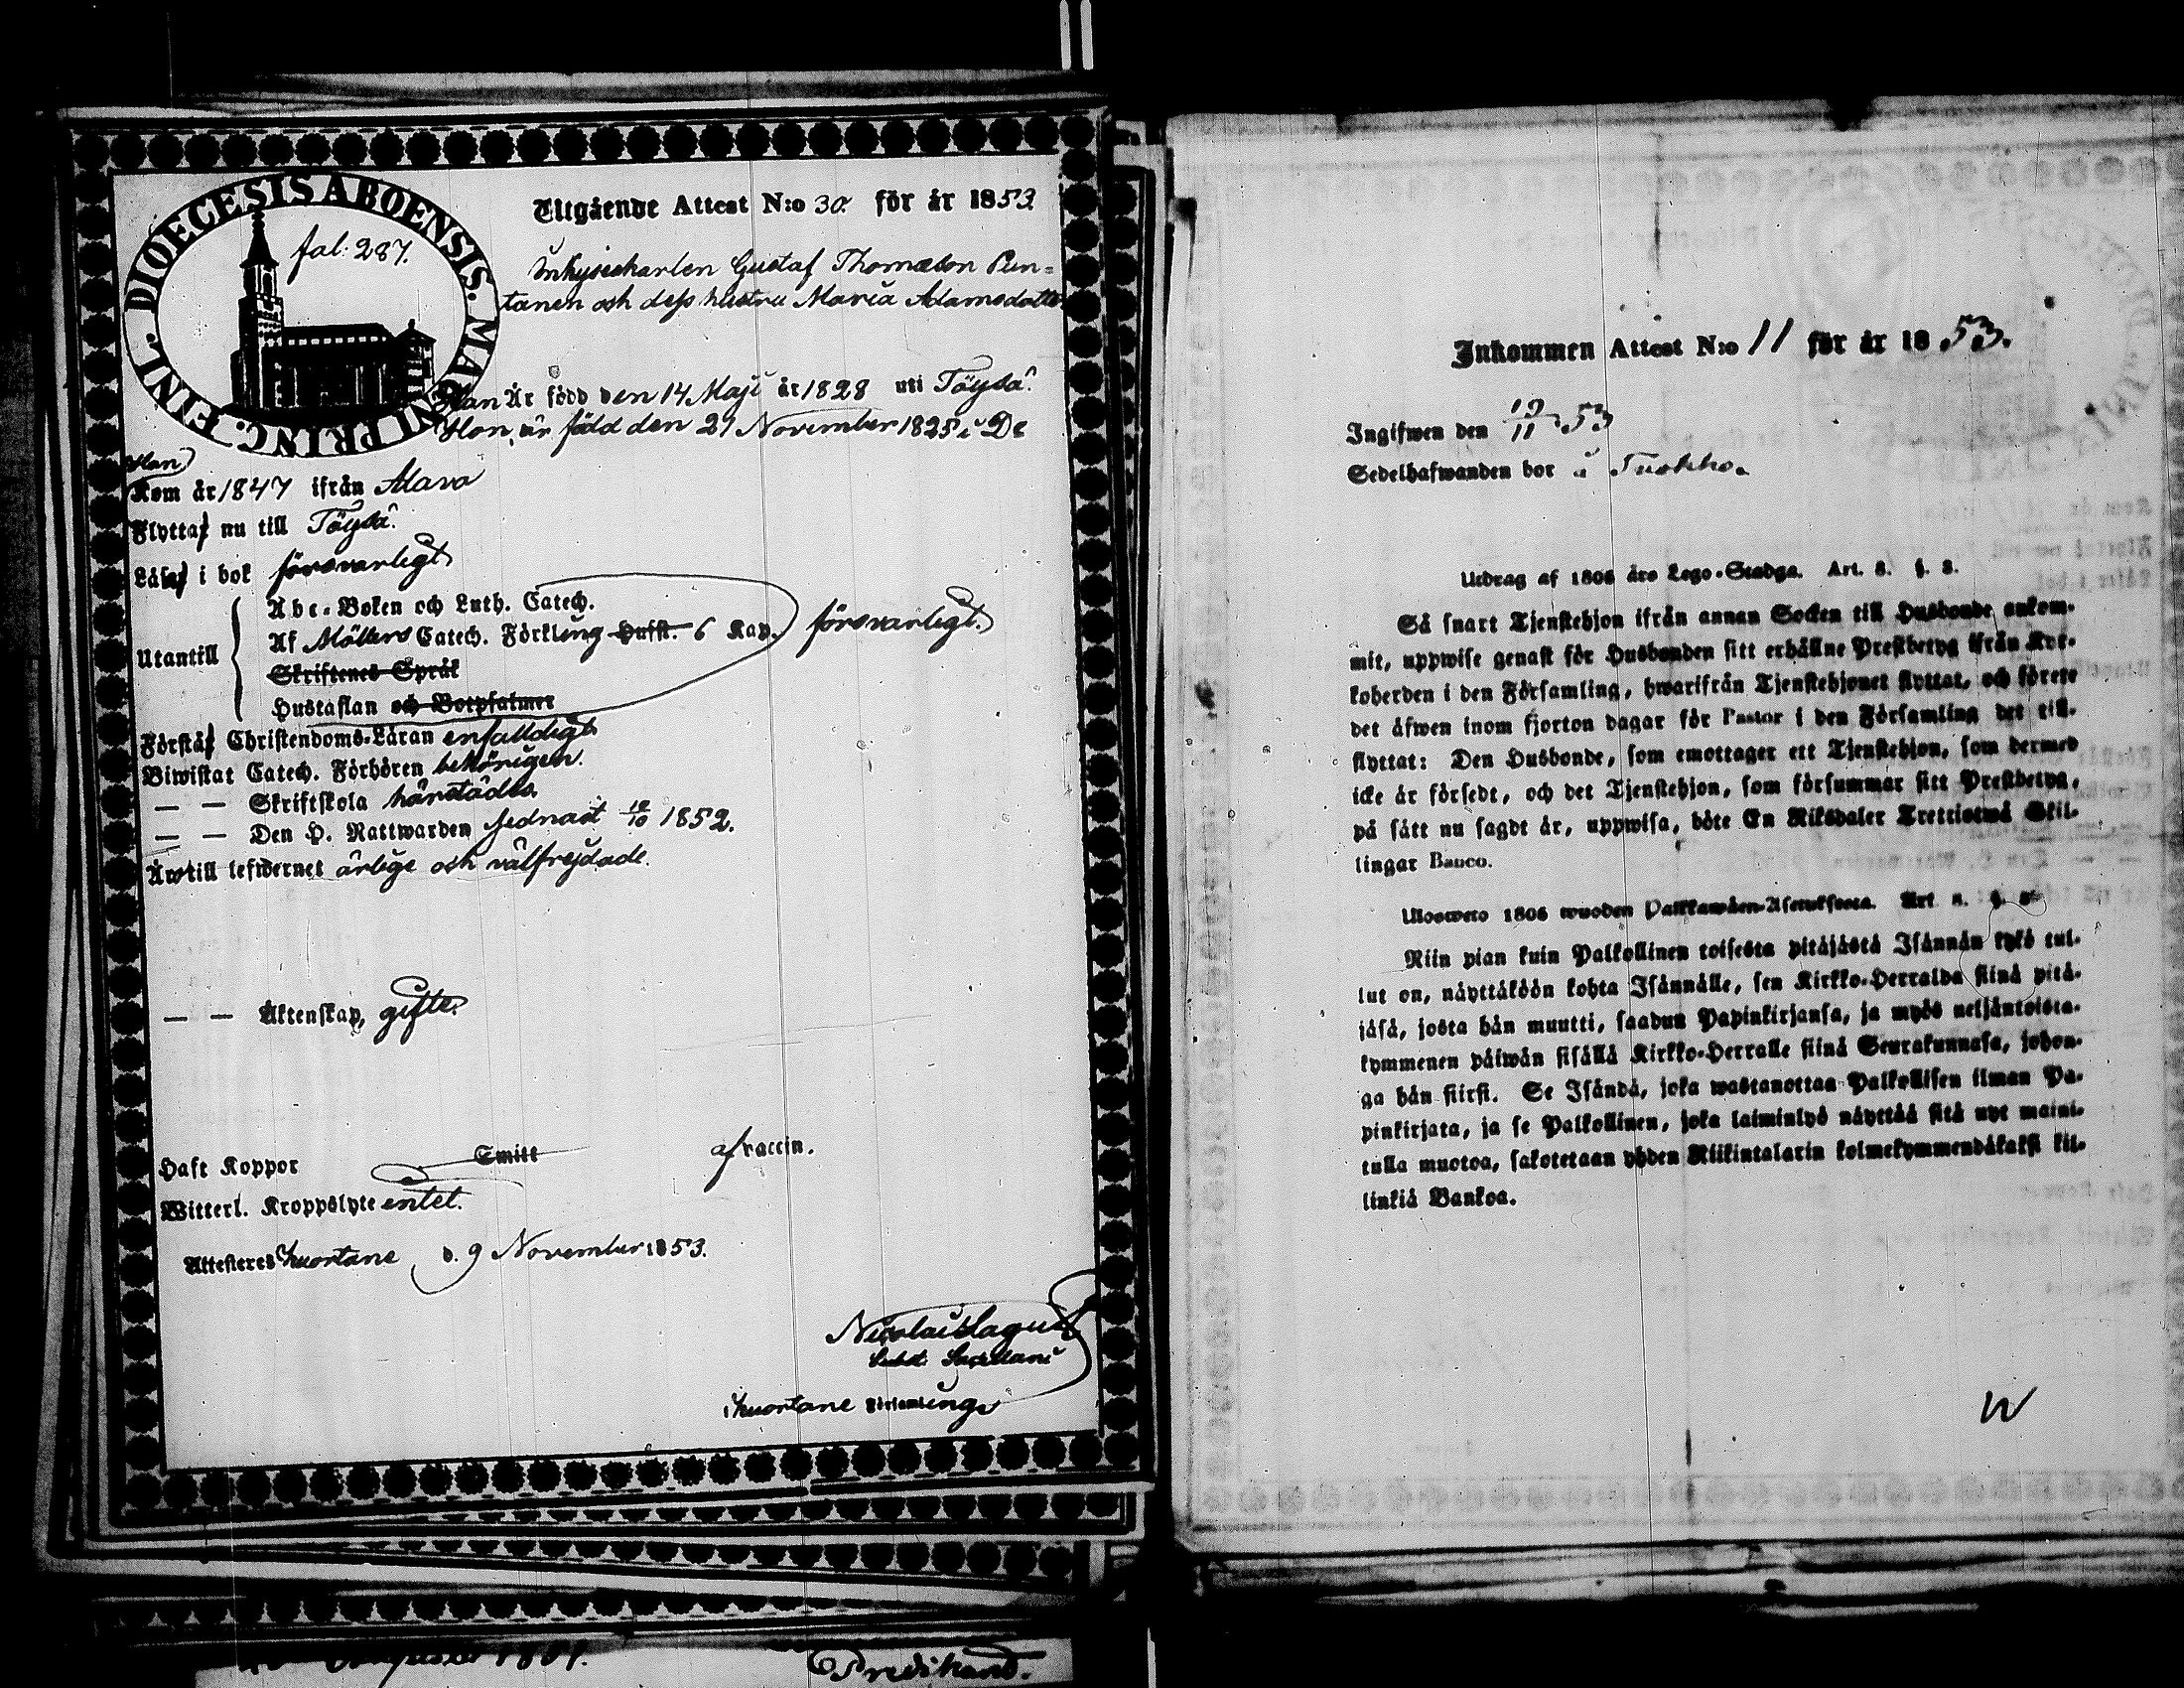 DIOECESIS ABOENSIS. MAGNI PRINC. FINL.
fol: 287.
Utgående Attest N:o 30. för år 1853.
Inhysekarlen Gustaf Thomasson Pun=
tanen och dess hustru Maria Adamsdotter
Han Är född den 14 Maji år 1828 uti Töysä.
Hon är född den 27 November 1825 i D:o
Han
Kom år 1847 ifrån Alavo
Flyttat nu till Töysä.
Läsa i bok försvarligt
Utantill
Abc-Boken och Luth. Catech.
Af Möllers Catech. Förkling Husft. 6 Kap. försvarligt.
Skriftenes Språk
Hustaflan och Botpsalmer
Förstå Christendoms-Läran enfaldigt
Biwistat Catech. Förhören behörigen.
— — Skriftskola härstädes
— — Den H. Nattwarden sednast 10/10 1852.
Äro till lefwernet ärlige och välfrejdade.
— — Äktenskap, gifte.
Haft Koppor Smitt af vaccin.
Witterl. Kroppslyte entet.
Attesteres Kuortane d. 9 November 1853.
Nicolai
Kuortane Församlings
Inkommen Attest N:o 11 för år 1853.
Ingifwen den 19/11 53
Sedelhafwanden bor i
Utdrag af 1805 års Lego-Stadga. Art. 8. §. 3.
Så snart Tjenstehjon ifrån annan Socken till Husbonde ankom-
mit, uppwise genast för Husbonden sitt erhållne Prestbetyg ifrån Kyr-
koherden i den Församling, hwarifrån Tjenstehjonet flyttat, och förete
det äfwen inom fjorton dagar för Pastor i den Församling det till-
flyttat: Den Husbonde, som emottager ett Tjenstehjon, som dermed
icke är försedt, och det Tjenstehjon, som försummar sitt Prestbetyg,
på sätt nu sagdt är, uppwisa, böte En Riksdaler Trettiotwå Skil-
lingar Banco.
Ulosweto 1805 wuoden Palkkawäen-Asetuksesta. Art.
Niin pian kuin Palkollinen toisesta pitäjästä Isännän tykö tul-
lut on, näyttäköön kohta Isännälle, sen Kirkko-Herralda siinä pitä-
jäsä, josta hän muutti, saadun Papinkirjansa, ja myös neljäntoista-
kymmenen päiwän sisällä Kirkko-Herralle siinä Seurakunnasa, johon-
ga hän siirsi. Se Isändä, joka wastanottaa Palkollisen ilman Pa-
pinkirjata, ja se Palkollinen, joka laiminlyö näyttää sitä nyt maini-
tulla muotoa, sakotetaan yhden Riikintalarin kolmekymmendäkaksi kil-
linkiä Bankoa.
1851.
Predikand.